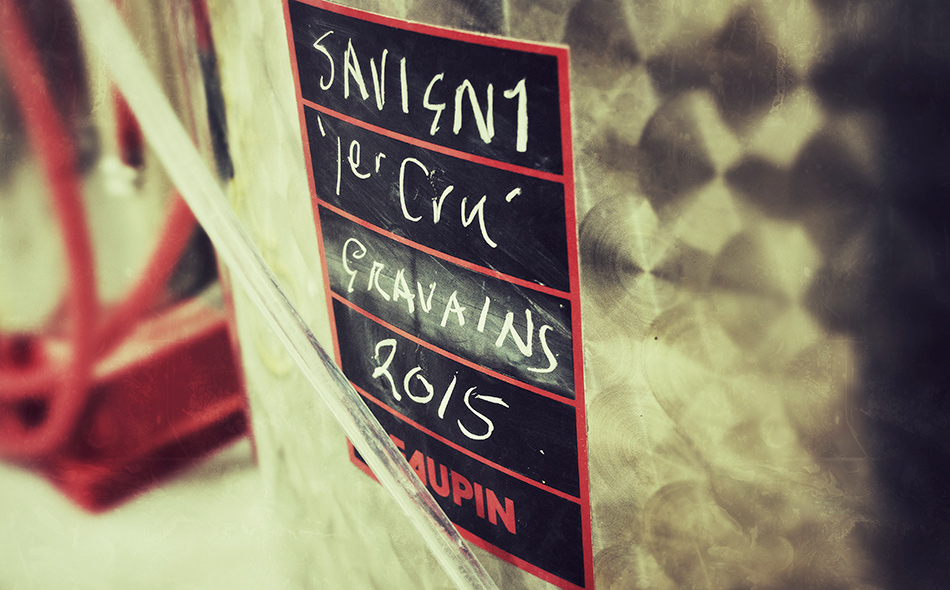 SAVIGNY
1er Cru
GRAVAINS
2015